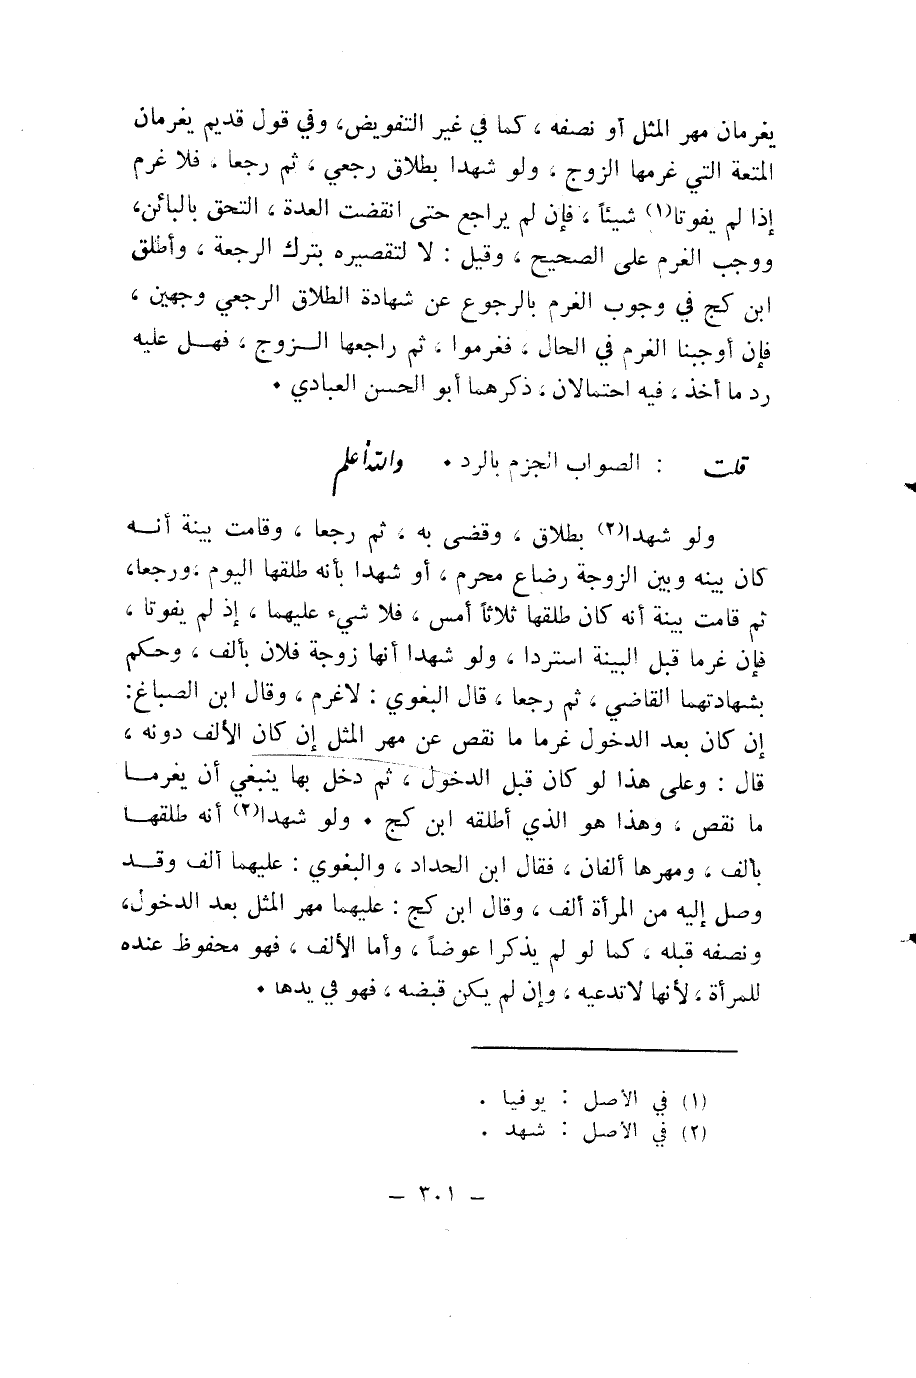 يغرمان مهر المثل أو نصفه ، كما في غير التفويض، وفي قول قديم يغرمان
المتعة التي غرمها الزوج ، ولو شهدا بطلاق رجعي ، ثم رجعا ، فلا غرم
إذا لم يفوتا(١) شيئاً ، فإن لم يراجع حتى انقضت العدة ، التحق بالبائن،
ووجب الغرم على الصحيح ، وقيل : لا لتقصيره بترك الرجعة ، وأطلق
ابن كج في وجوب الغرم بالرجوع عن شهادة الطلاق الرجعي وجهين ،
فإن أوجبنا الغرم في الحال ، فغرموا ، ثم راجعها الـزوج ، فهـل عليه
رد ما أخذ ، فيه احتمالان ، ذكرهما أبو الحسن العبادي .
قلت : الصواب الجزم بالرد . والله أعلم
ولو شهدا(٢) بطلاق ، وقضى به ، ثم رجعا ، وقامت بينة أنـه
كان بينه وبين الزوجة رضاع محرم ، أو شهدا بأنه طلقها اليوم ،ورجعا،
ثم قامت بينة أنه كان طلقها ثلاثاً أمس ، فلا شيء عليهما ، إذ لم يفوتا ،
فإن غرما قبل البينة استردا ، ولو شهدا أنها زوجة فلان بألف ، وحكم
بشهادتهما القاضي ، ثم رجعا ، قال البغوي : لاغرم ، وقال ابن الصباغ:
إن كان بعد الدخول غرما ما نقص عن مهر المثل إن كان الألف دونه ،
قال : وعلى هذا لو كان قبل الدخول ، ثم دخل بها ينبغي أن يغرمـا
ما نقص ، وهذا هو الذي أطلقه ابن كج . ولو شهدا(٢) أنه طلقهـا
بألف ، ومهرها ألفان ، فقال ابن الحداد ، والبغوي : عليهما ألف وقـد
وصل إليه من المرأة ألف ، وقال ابن كج : عليهما مهر المثل بعد الدخول،
ونصفه قبله ، كما لو لم يذكرا عوضاً ، وأما الألف ، فهو محفوظ عنده
للمرأة ، لأنها لاتدعيه ، وإن لم يكن قبضه ، فهو في يدها .
(١) في الأصل : يوفيا .
(٢) في الأصل : شهد .
– ٣٠١ –